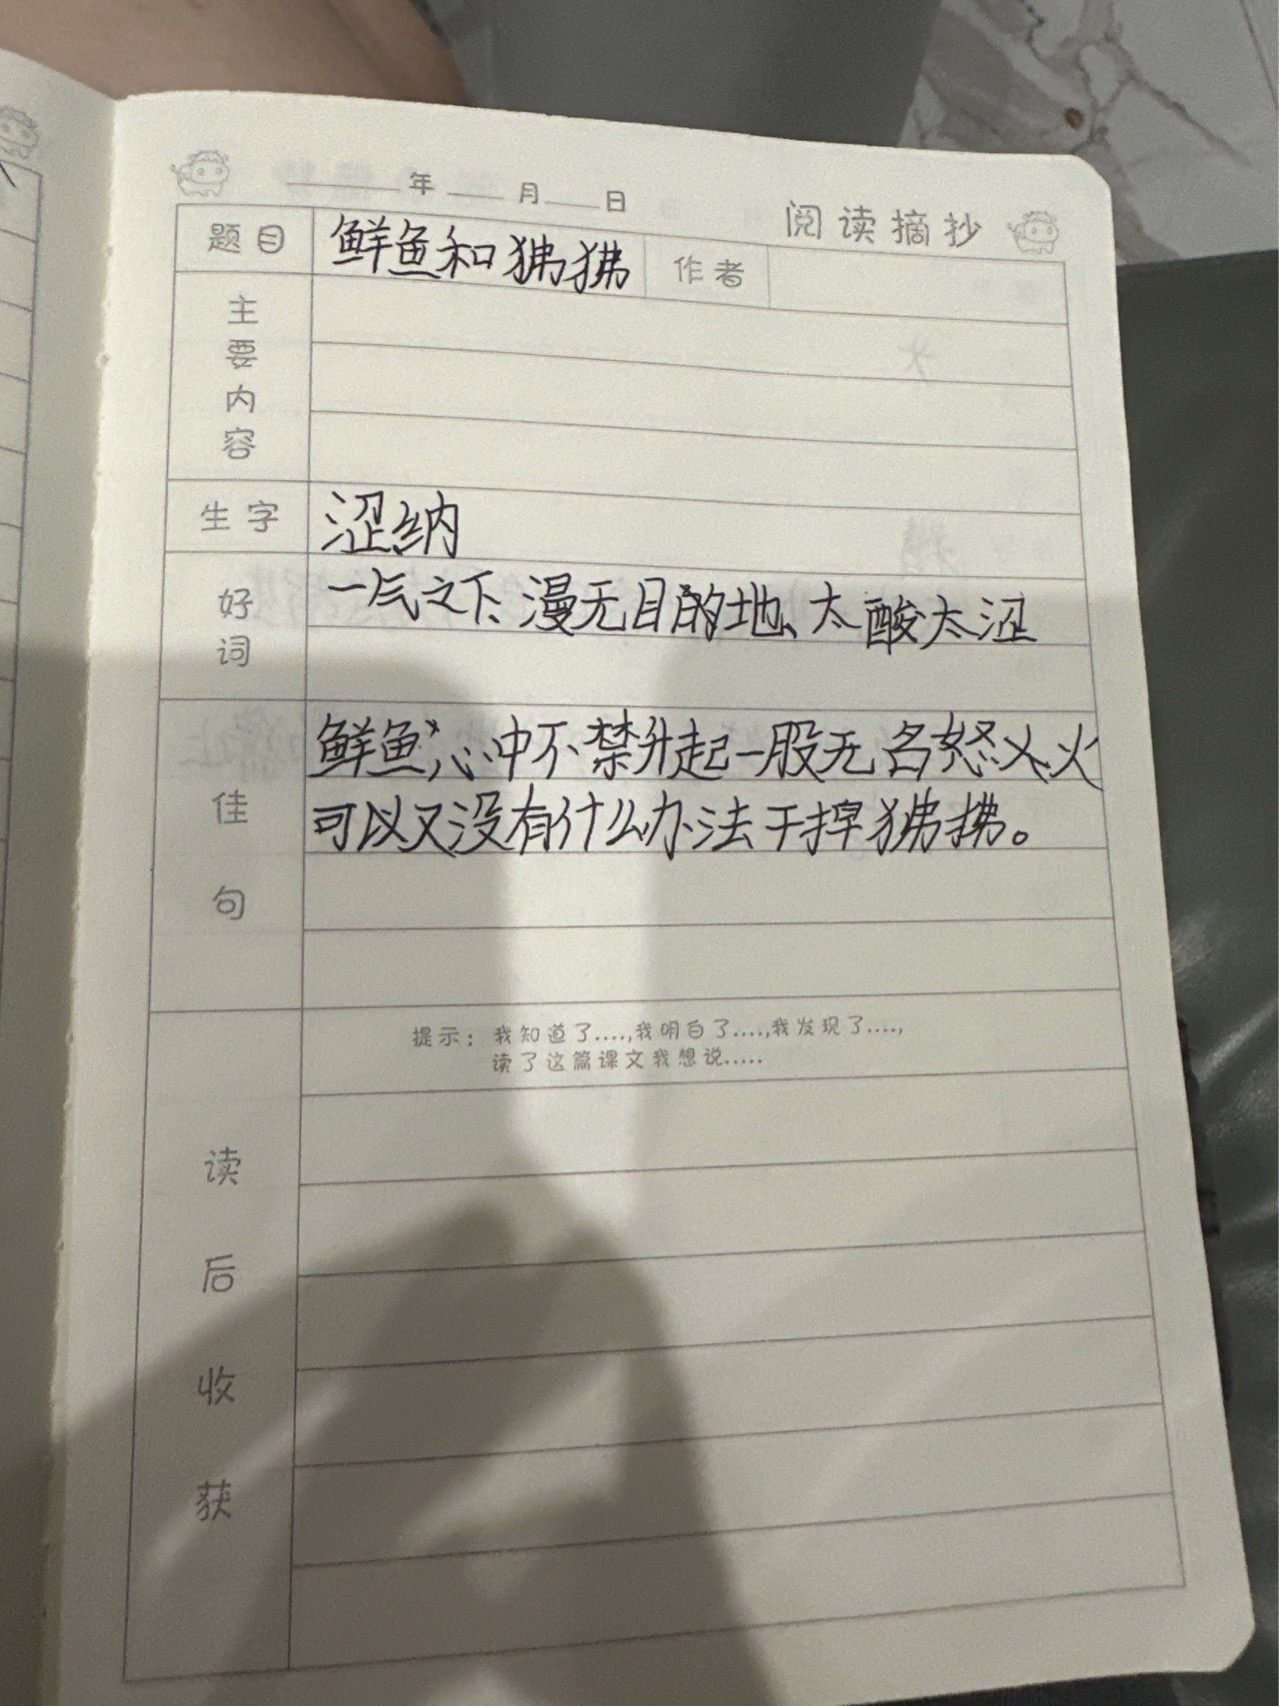 ____年____月____日
阅读摘抄
题目 鲜鱼和狒狒 作者
主要内容
生字 涩纳
好词 一气之下、漫无目的地、太酸太涩
佳句 鲜鱼心中不禁升起一股无名怒火火
可以又没有什么办法干捍狒拂。
提示：我知道了....,我明白了....,我发现了....,
读了这篇课文我想说.....
读后收获